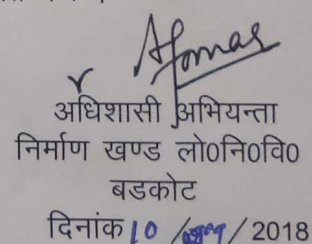 अधिशासी अभियन्ता
निर्माण खण्ड लो०नि०वि०
बडकोट
दिनांक 10 / / 2018